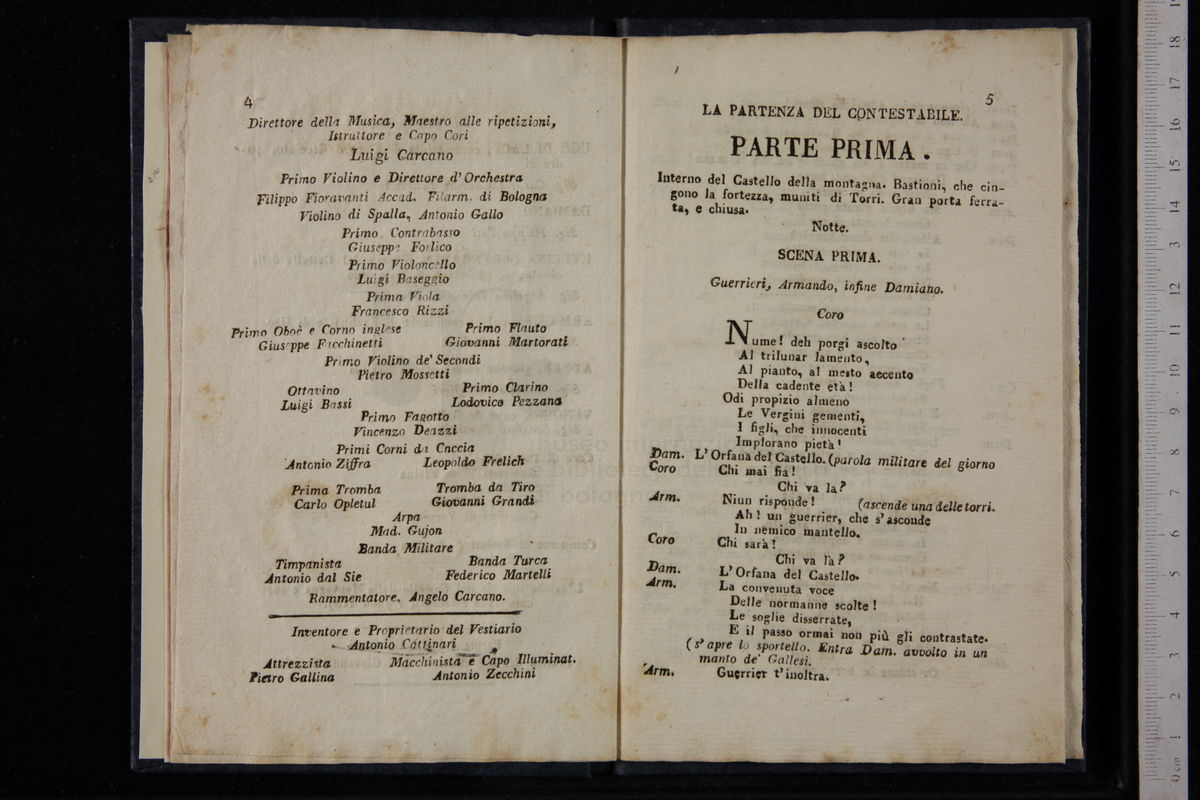 4
Direttore della Musica, Maestro alle ripetizioni,
Istruttore e Capo Cori
Luigi Carcano
Primo Violino e Direttore d'Orchestra
Filippo Fioravanti Accad. Filarm. di Bologna
Violino di Spalla, Antonio Gallo
Primo Contrabasso
Giuseppe Forlico
Primo Violoncello
Luigi Baseggio
Prima Viola
Francesco Rizzi
Primo Oboè e Corno inglese Primo Flauto
Giuseppe Facchinetti Giovanni Martorati
Primo Violino de' Secondi
Pietro Mossetti
Ottavino Primo Clarino
Luigi Bassi Lodovico Pezzana
Primo Fagotto
Vincenzo Deazzi
Primi Corni da Caccia
Antonio Ziffra Leopoldo Frelich
Prima Tromba Tromba da Tiro
Carlo Opletul Giovanni Grandi
Arpa
Mad. Gujon
Banda Militare
Timpanista Banda Turca
Antonio dal Sie Federico Martelli
Rammentatore, Angelo Carcano.
Inventore e Proprietario del Vestiario
Antonio Cattinari
Attrezzista Macchinista e Capo Illuminat.
Pietro Gallina Antonio Zecchini
5
LA PARTENZA DEL CONTESTABILE.
PARTE PRIMA.
Interno del Castello della montagna. Bastioni, che cin-
gono la fortezza, muniti di Torri. Gran porta ferra-
ta, e chiusa.
Notte.
SCENA PRIMA.
Guerrieri, Armando, infine Damiano.
Coro
Nume! deh porgi ascolto
Al trilunar lamento,
Al pianto, al mesto accento
Della cadente età!
Odi propizio almeno
Le Vergini gementi,
I figli, che innocenti
Implorano pietà!
Dam. L'Orfana del Castello. (parola militare del giorno
Coro Chi mai fia!
Chi va la?
Arm. Niun risponde! (ascende una delle torri.
Ah! un guerrier, che s'asconde
In nemico mantello.
Coro Chi sarà!
Chi va là?
Dam. L'Orfana del Castello.
Arm. La convenuta voce
Delle normanne scolte!
Le soglie disserrate,
E il passo ormai non più gli contrastate.
(s'apre lo sportello. Entra Dam. avvolto in un
manto de' Gallesi.
Arm. Guerrier t'inoltra.